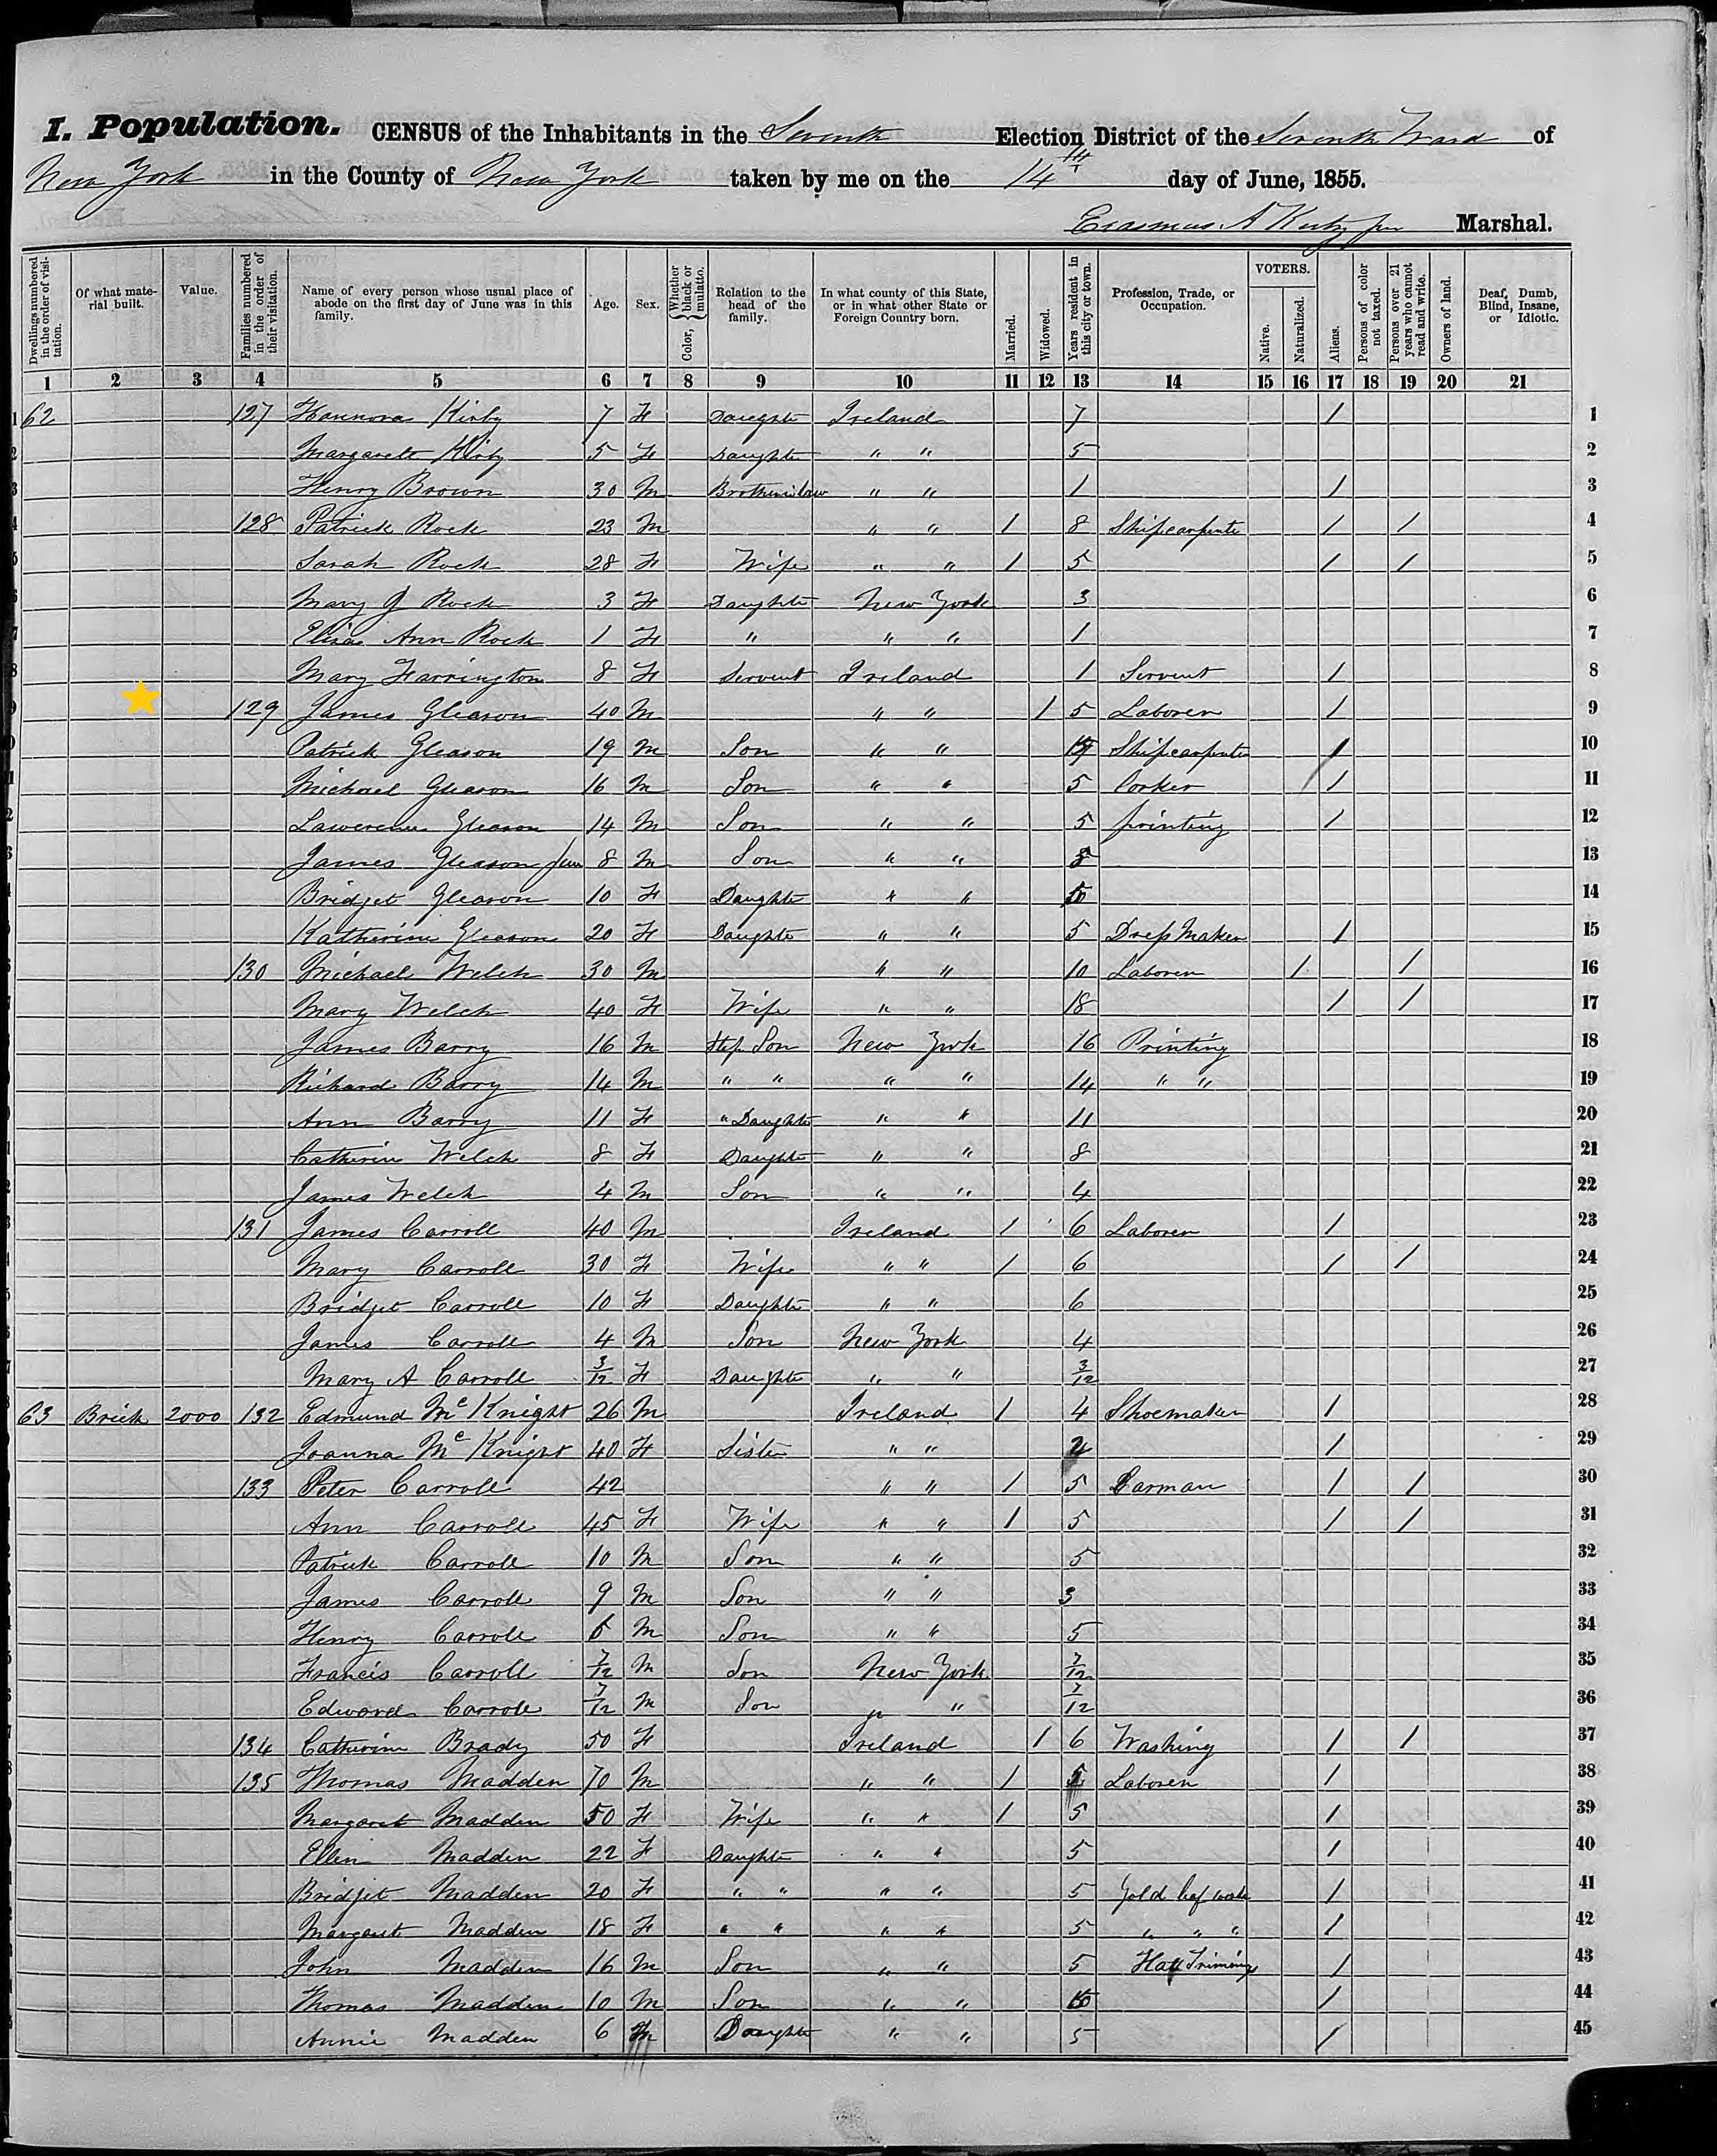 I. Population. CENSUS of the Inhabitants in the Seventh Election District of the Seventh Ward of
New York in the County of New York taken by me on the 14th day of June, 1855.
Erasmus A Kirby jr Marshal.
Dwellings numbered in the order of visitation. Of what material built. Value. Families numbered in the order of their visitation. Name of every person whose usual place of abode on the first day of June was in this family. Age. Sex. Color, { Whether black or mulatto. Relation to the head of the family. In what county of this State, or in what other State or Foreign Country born. Married. Widowed. Years resident in this city or town. Profession, Trade, or Occupation. VOTERS. Native. Naturalized. Aliens. Persons of color not taxed. Persons over 21 years who cannot read and write. Owners of land. Deaf, Dumb, Blind, Insane, or Idiotic.
1 2 3 4 5 6 7 8 9 10 11 12 13 14 15 16 17 18 19 20 21
1 62 127 Hannora Kirby 7 F Daughte Ireland 7 / 1
2 Margarett Kirby 5 F Daughte " " 5 2
3 Henry Brown 30 M Brotherinlaw " " 1 / 3
4 128 Patrick Rock 23 M " " 1 8 Shipcarpente / / 4
5 Sarah Rock 28 F Wife " " 1 5 / / 5
6 Mary J Rock 3 F Daughte New York 3 6
7 Eliza Ann Rock 1 F " " " 1 7
8 Mary Farrington 8 F Servent Ireland 1 Servent / 8
9 129 James Gleason 40 M " " 1 5 Laborer / 9
Patrick Gleason 19 M Son " " Shipcarpente / 10
Michael Gleason 16 M Son " " 5 Corker / 11
Lawerence Gleason 14 M Son " " 5 printing / 12
James Gleason Jun 8 M Son " " 13
Bridget Gleason 10 F Daughte " " 14
Katherine Gleason 20 F Daughte " " 5 Dress Maker / 15
130 Michael Welch 30 M " " 10 Laborer / / 16
Mary Welch 40 F Wife " " 18 / / 17
James Barry 16 M Step Son New York 16 Printing 18
Richard Barry 14 M " " " " 14 " " 19
Ann Barry 11 F " Daughte " " 11 20
Catherin Welch 8 F Daughte " " 8 21
James Welch 4 M Son " " 4 22
131 James Carroll 40 M Ireland 1 6 Laborer / 23
Mary Carroll 30 F Wife " " 1 6 / / 24
Bridget Carroll 10 F Daughte " " 6 25
James Carroll 4 M Son New York 4 26
Mary A Carroll 3/12 F Daughte " " 3/12 27
63 Brick 2000 132 Edmund McKnight 26 M Ireland 1 4 Shoemaker / 28
Joanna McKnight 40 F Sister " " / 29
133 Peter Carroll 42 " " 1 5 Carman / / 30
Ann Carroll 45 F Wife " " 1 5 / / 31
Patrick Carroll 10 M Son " " 5 32
James Carroll 9 M Son " " 3 33
Henry Carroll 6 M Son " " 5 34
Francis Carroll 7/12 M Son New York 7/12 35
Edward Carroll 7/12 M Son " " 7/12 36
134 Catherine Brady 50 F Ireland 1 6 Washing / / 37
135 Thomas Madden 70 M " " 1 Laborer / 38
Margaret Madden 50 F Wife " " 1 5 / 39
Ellen Madden 22 F Daughte " " 5 / 40
Bridjet Madden 20 F " " " " 5 Gold leaf work / 41
Margaret Madden 18 F " " " " 5 " " " / 42
John Madden 16 M Son " " 5 Hatt Triming / 43
Thomas Madden 10 M Son " " / 44
Annie Madden 6 Daughte " " 5 / 45